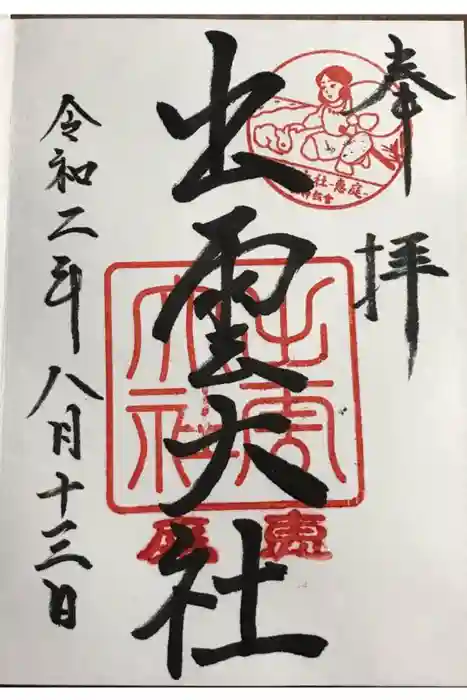 奉拝
出雲大社
令和二年八月十三日
出雲
大社
恵庭
社-恵庭-